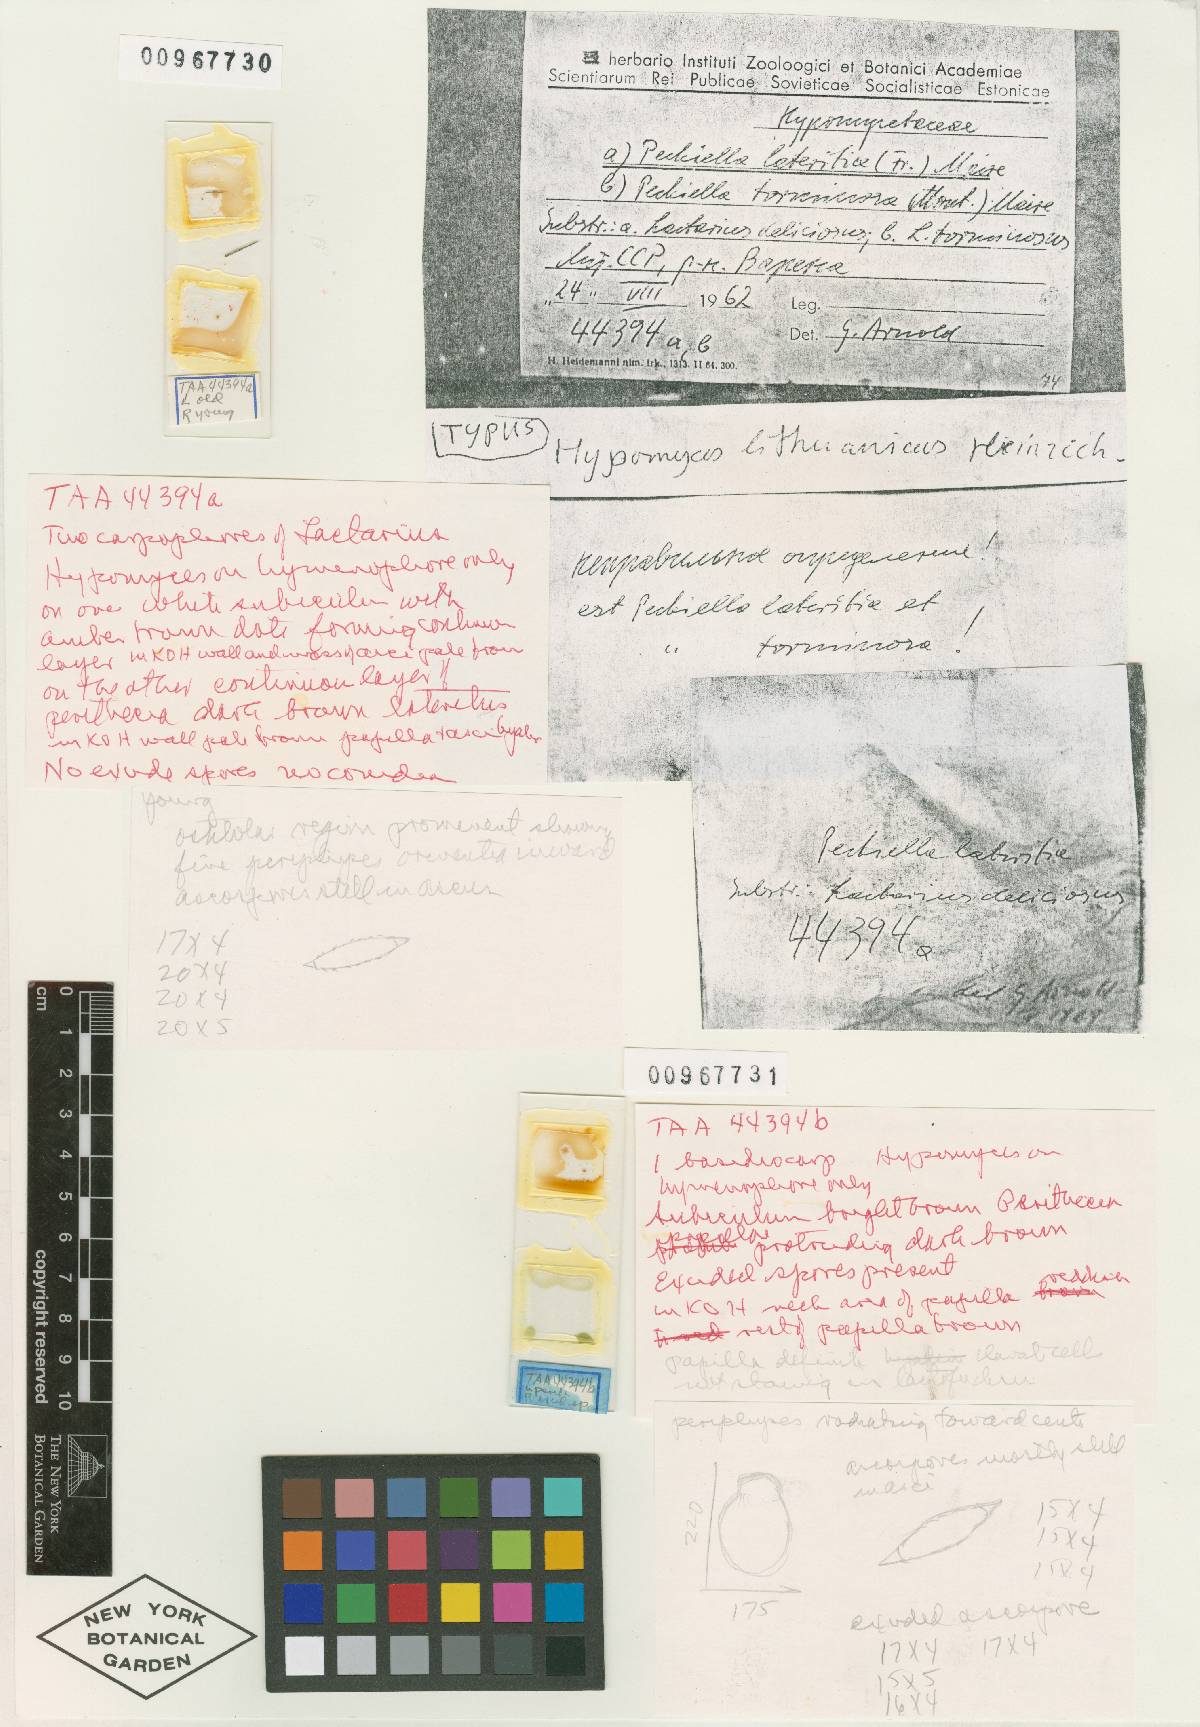 00967730
herbario Instituti Zooloogici et Botanici Academiae
Scientiarum Rei Publicae Sovieticae Socialisticae Estonicae
Hypomycetaceae
a) Peckiella lateritia (Fr.) Maire
b) Peckiella torminosa (Mont.) Maire
Substr.: a. Lactarius deliciosus; b. L. torminosus
ССР, р-н. Варена
"24" VIII 1962 Leg.
44394 a, b Det. G. Arnold
H. Heidemanni nim. trk., 1313. II 64. 300.
74
TYPUS
Hypomyces lithuanicus Heinrich.
неправильное определение!
est Peckiella lateritia et
" torminosa!
TAA 44394a
L old
R young
TAA 44394a
Two carpophores of Lactarius
Hypomyces on hymenophore only
on one white subiculum with
amber brown dots forming continuous
layer in KOH wall and mass of asci pale brown
on the other continuous layer
perithecia dark brown lateritus
in KOH wall pale brown papilla
No exude spores no conidia
young
ostiolar region prominent showing
fine periphyses oriented inward
ascospores still in ascus
17X4
20X4
20X4
20X5
Peckiella lateritia
Substr.: Lactarius deliciosus
44394a
det G. Arnold
00967731
TAA 44394b
TAA 44394b
1 basidiocarp Hypomyces on
hymenophore only
Subiculum bright brown Perithecia
papillae
protruding dark brown
Exuded spores present
in KOH neck area of papilla
rest of papilla brown
papilla definite clavate cells
not showing in lactofuchsin
periphyses radiating toward center
ascospores mostly still
in asci
220
175
15X4
15X4
15X4
exuded ascospore
17X4 17X4
15X5
16X4
cm 0 1 2 3 4 5 6 7 8 9 10
copyright reserved
THE NEW YORK
BOTANICAL GARDEN
NEW YORK
BOTANICAL
GARDEN